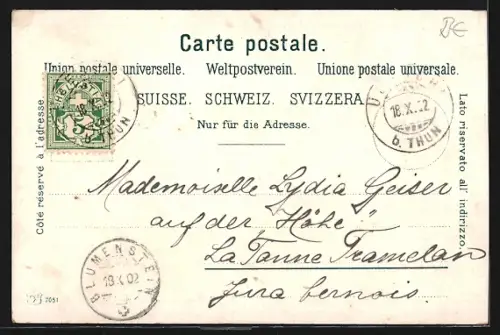 B€
Carte postale.
Union postale universelle. Weltpostverein. Unione postale universale.
SUISSE. SCHWEIZ. SVIZZERA.
Nur für die Adresse.
Côté réservé à l'adresse.
Lato riservato all' indirizzo.
5
THUN
18.X.02
b. THUN
Mademoiselle Lydia Geiser
auf der "Höhe"
La Tanne Tramelan
Jura bernois.
BLUMENSTEIN
19.X.02
7051